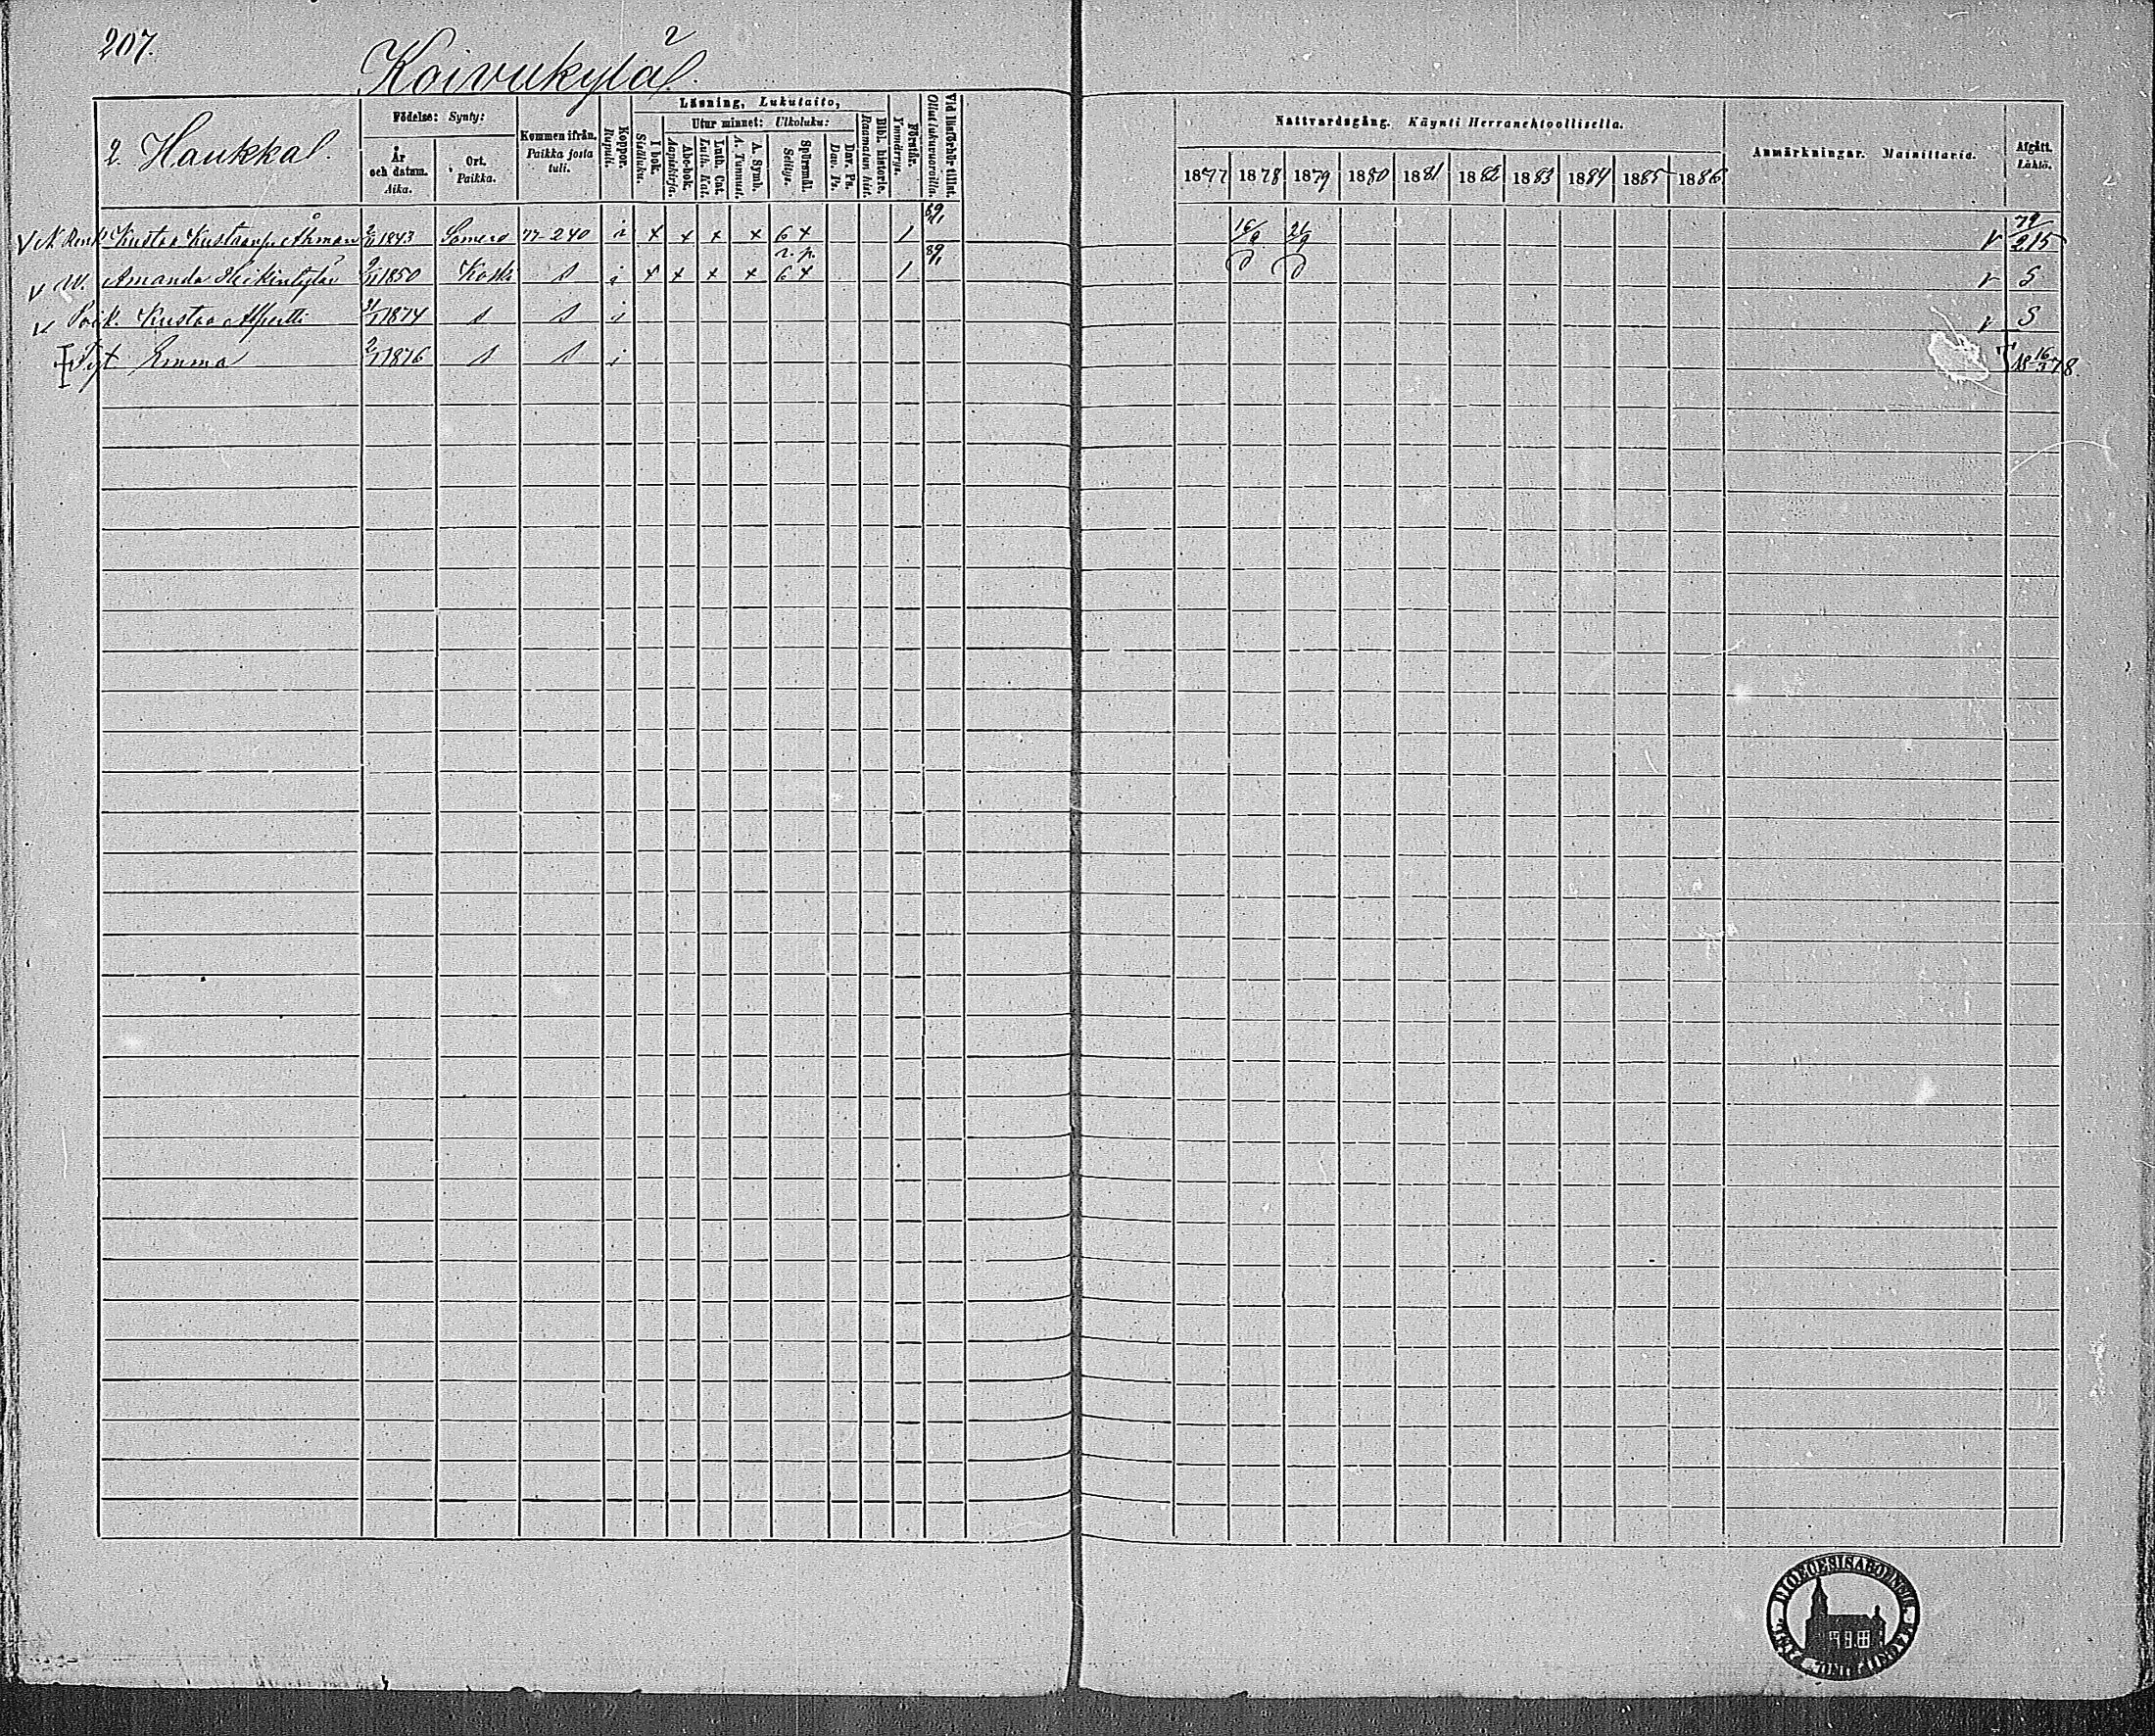 207.
Koivukylä 2
2. Haukka
Födelse: Synty:
År och datum. Aika.
Ort. Paikka.
Kommen ifrån. Paikka josta tuli.
Koppor. Rupuli.
Läsning, Lukutaito,
I bok. Sisäluku.
Utur minnet: Ulkoluku:
Abc-bok. Aapiskirja.
Luth. Cat. Luth. Kat.
A. Symb. A. Tunnust.
Spörsmål. Selitys.
Dav. Ps. Dav. Ps.
Bibl. historie. Raamatun hist.
Förstår. Ymmärrys.
Vid läsförhör tillst. Ollut lukuvuoroilla.
Nattvardsgång. Käynti Herranehtoollisella.
1877 1878 1879 1880 1881 1882 1883 1884 1885 1886
Anmärkningar. Mainittavia.
Afgått. Lähtö.
Kustaa Kustaanp. Åhman 1843 Somero 77-240 i x x x x 6 x 1 16/9 21/9 v 79/215
W. Amanda Heikintytär 1850 Koski s i x x x x 6 x 1 v S
Poik. Kustaa Alpertti 1874 s s i v S
Tyt. Emma 2/1 1876 s s i 18 16/3 78.